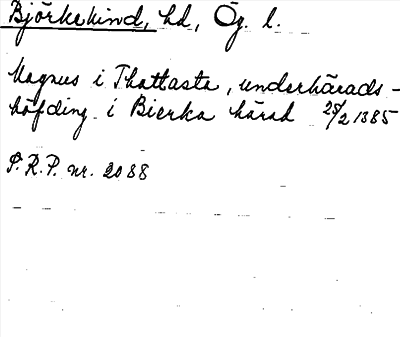 Björkekind, hd, Ög. l.
Magnus i Thattasta, underhärads-
höfding i Bierka härad 25/2 1385
P.R.P. nr. 2088